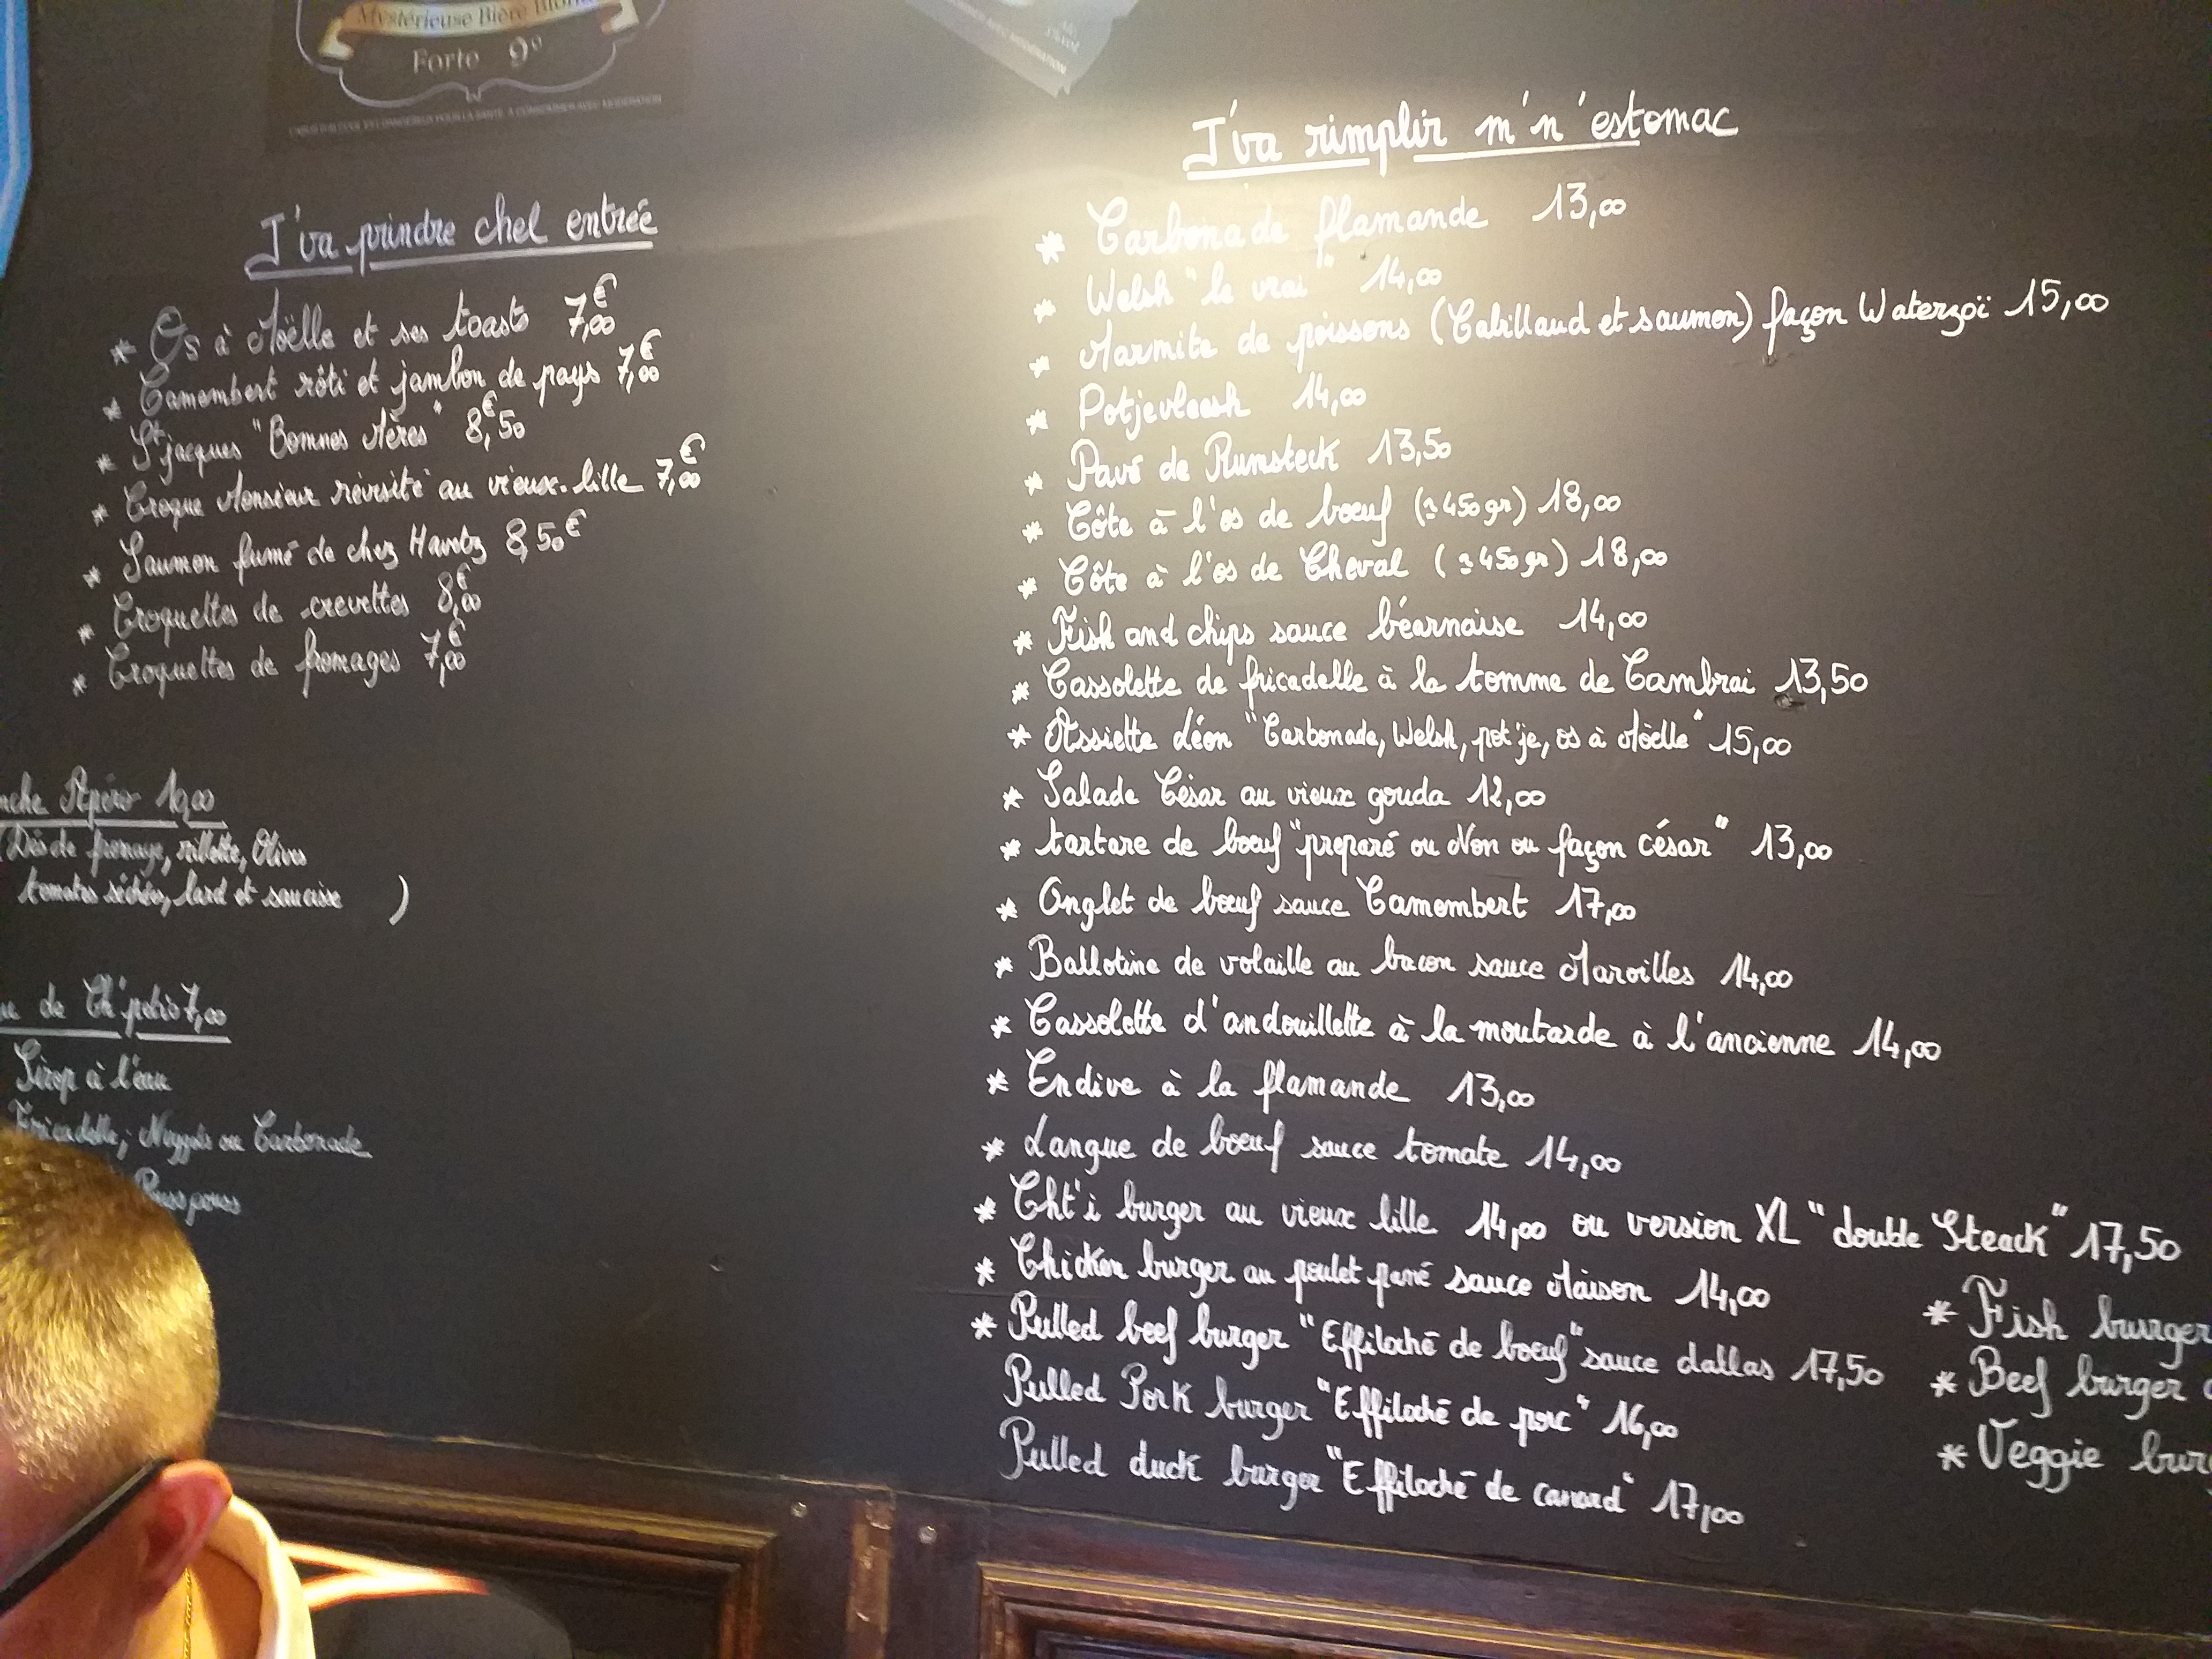 Mystérieuse Bière
Forte 9°
J'va prindre chel entrée
* Os à Moëlle et ses toasts 7,00€
* Camembert rôti et jambon de pays 7,00€
* St jacques "Bonnes Mères" 8,50€
* Croque Monsieur revisité au vieux-lille 7,00€
* Saumon fumé de chez 8,50€
* Croquettes de crevettes 8,00€
* Croquettes de fromages 7,00€
Apéro
(Dés de fromage, rillette, Olives
tomates séchées, lard et saucisse )
de Ch'petio 7,00
Sirop à l'eau
Fricadelle, Nuggets ou Carbonade
Pouss pouss
J'va rimplir m'n'estomac
* Carbonade flamande 13,00
* Welsh "le vrai" 14,00
* Marmite de poissons (Cabillaud et saumon) façon Waterzoï 15,00
* Potjevleesh 14,00
* Pavé de Rumsteck 13,50
* Côte à l'os de bœuf (≃450gr) 18,00
* Côte à l'os de Cheval (≃450gr) 18,00
* Fish and chips sauce béarnaise 14,00
* Cassolette de fricadelle à la tomme de Cambrai 13,50
* Assiette Léon "Carbonade, Welsh, pot'je, os à Moëlle" 15,00
* Salade César au vieux gouda 12,00
* tartare de bœuf "preparé ou Non ou façon césar" 13,00
* Onglet de bœuf sauce Camembert 17,00
* Ballotine de volaille au bacon sauce Maroilles 14,00
* Cassolette d'andouillette à la moutarde à l'ancienne 14,00
* Endive à la flamande 13,00
* Langue de bœuf sauce tomate 14,00
* Cht'i burger au vieux lille 14,00 ou version XL "double Steack" 17,50
* Chicken burger au poulet pané sauce Maison 14,00
* Pulled beef burger "Effiloché de bœuf" sauce dallas 17,50
Pulled Pork burger "Effiloché de porc" 16,00
Pulled duck burger "Effiloché de canard" 17,00
* Fish burger
* Beef burger
* Veggie